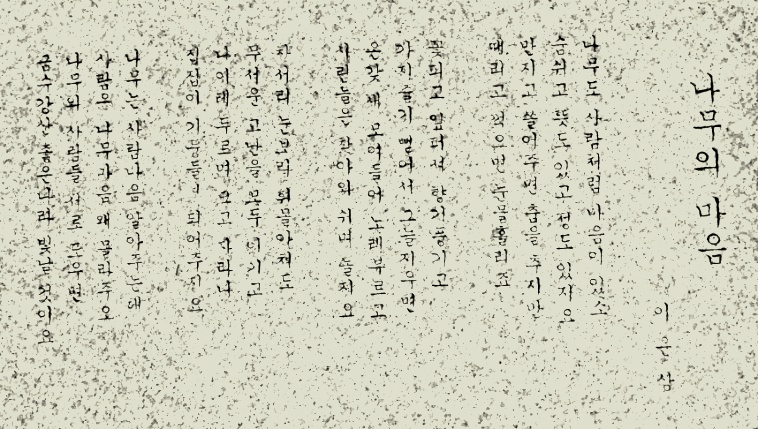 나무의 마음
이은상
나무도 사람처럼 마음이 있소
숨쉬고 뜻도 있고 정도 있지요
만지고 쓸어주면 춤을 추지만
때리고 꺾으면 눈물 흘리죠
꽃피고 잎 퍼져 향기 풍기고
가지 줄기 뻗어서 그늘 지우면
온갖 새 모여들어 노래 부르고
사람들은 찾아와 쉬며 놀지요
찬서리 눈보라 휘몰아쳐도
무서운 고난을 모두 이기고
나이테 두르며 크고 자라나
집집이 기둥들이 되어주지요
나무는 사람마음 알아주는데
사람은 나무마음 왜 몰라주오
나무와 사람들 서로 도우면
금수강산 좋은나라 빛날 것이오